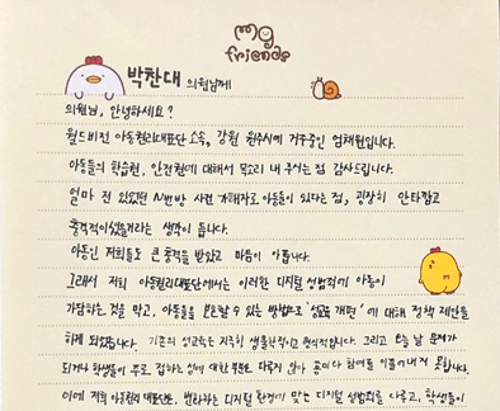 my
friends
박찬대 의원님께
의원님, 안녕하세요?
월드비전 아동권리대표단 소속, 강원 원주시에 거주중인 엄채원입니다.
아동들의 학습권, 안전권에 대해서 목소리 내 주시는 점 감사드립니다.
얼마 전 있었던 N번방 사건 가해자로 아동들이 있다는 점, 굉장히 안타깝고
충격적이셨을거라는 생각이 듭니다.
아동인 저희들도 큰 충격을 받았고 마음이 아픕니다.
그래서 저희 아동권리대표단에서는 이러한 디지털 성범죄에 아동이
가담하는 것을 막고, 아동들을 보호할 수 있는 방법으로 '성교육 개편'에 대해 정책 제안을
하게 되었습니다. 기존의 성교육은 지극히 생물학적이고 형식적입니다. 그리고 오늘 날 문제가
되거나 학생들이 주로 접하는 성에 대한 부분은 다루지 않아 흥미나 참여를 이끌어내지 못합니다.
이에 저희 아동권리대표단은, 변화하는 디지털 환경에 맞는 디지털 성범죄를 다루고, 학생들이